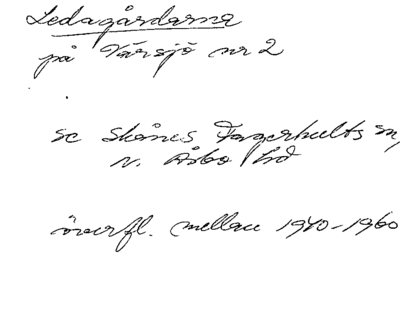 Ledagårdarna
på Värsjö nr 2
sc Skånes Fagerhults sn,
N. Åsbo hd
överfl. mellan 1940-1960